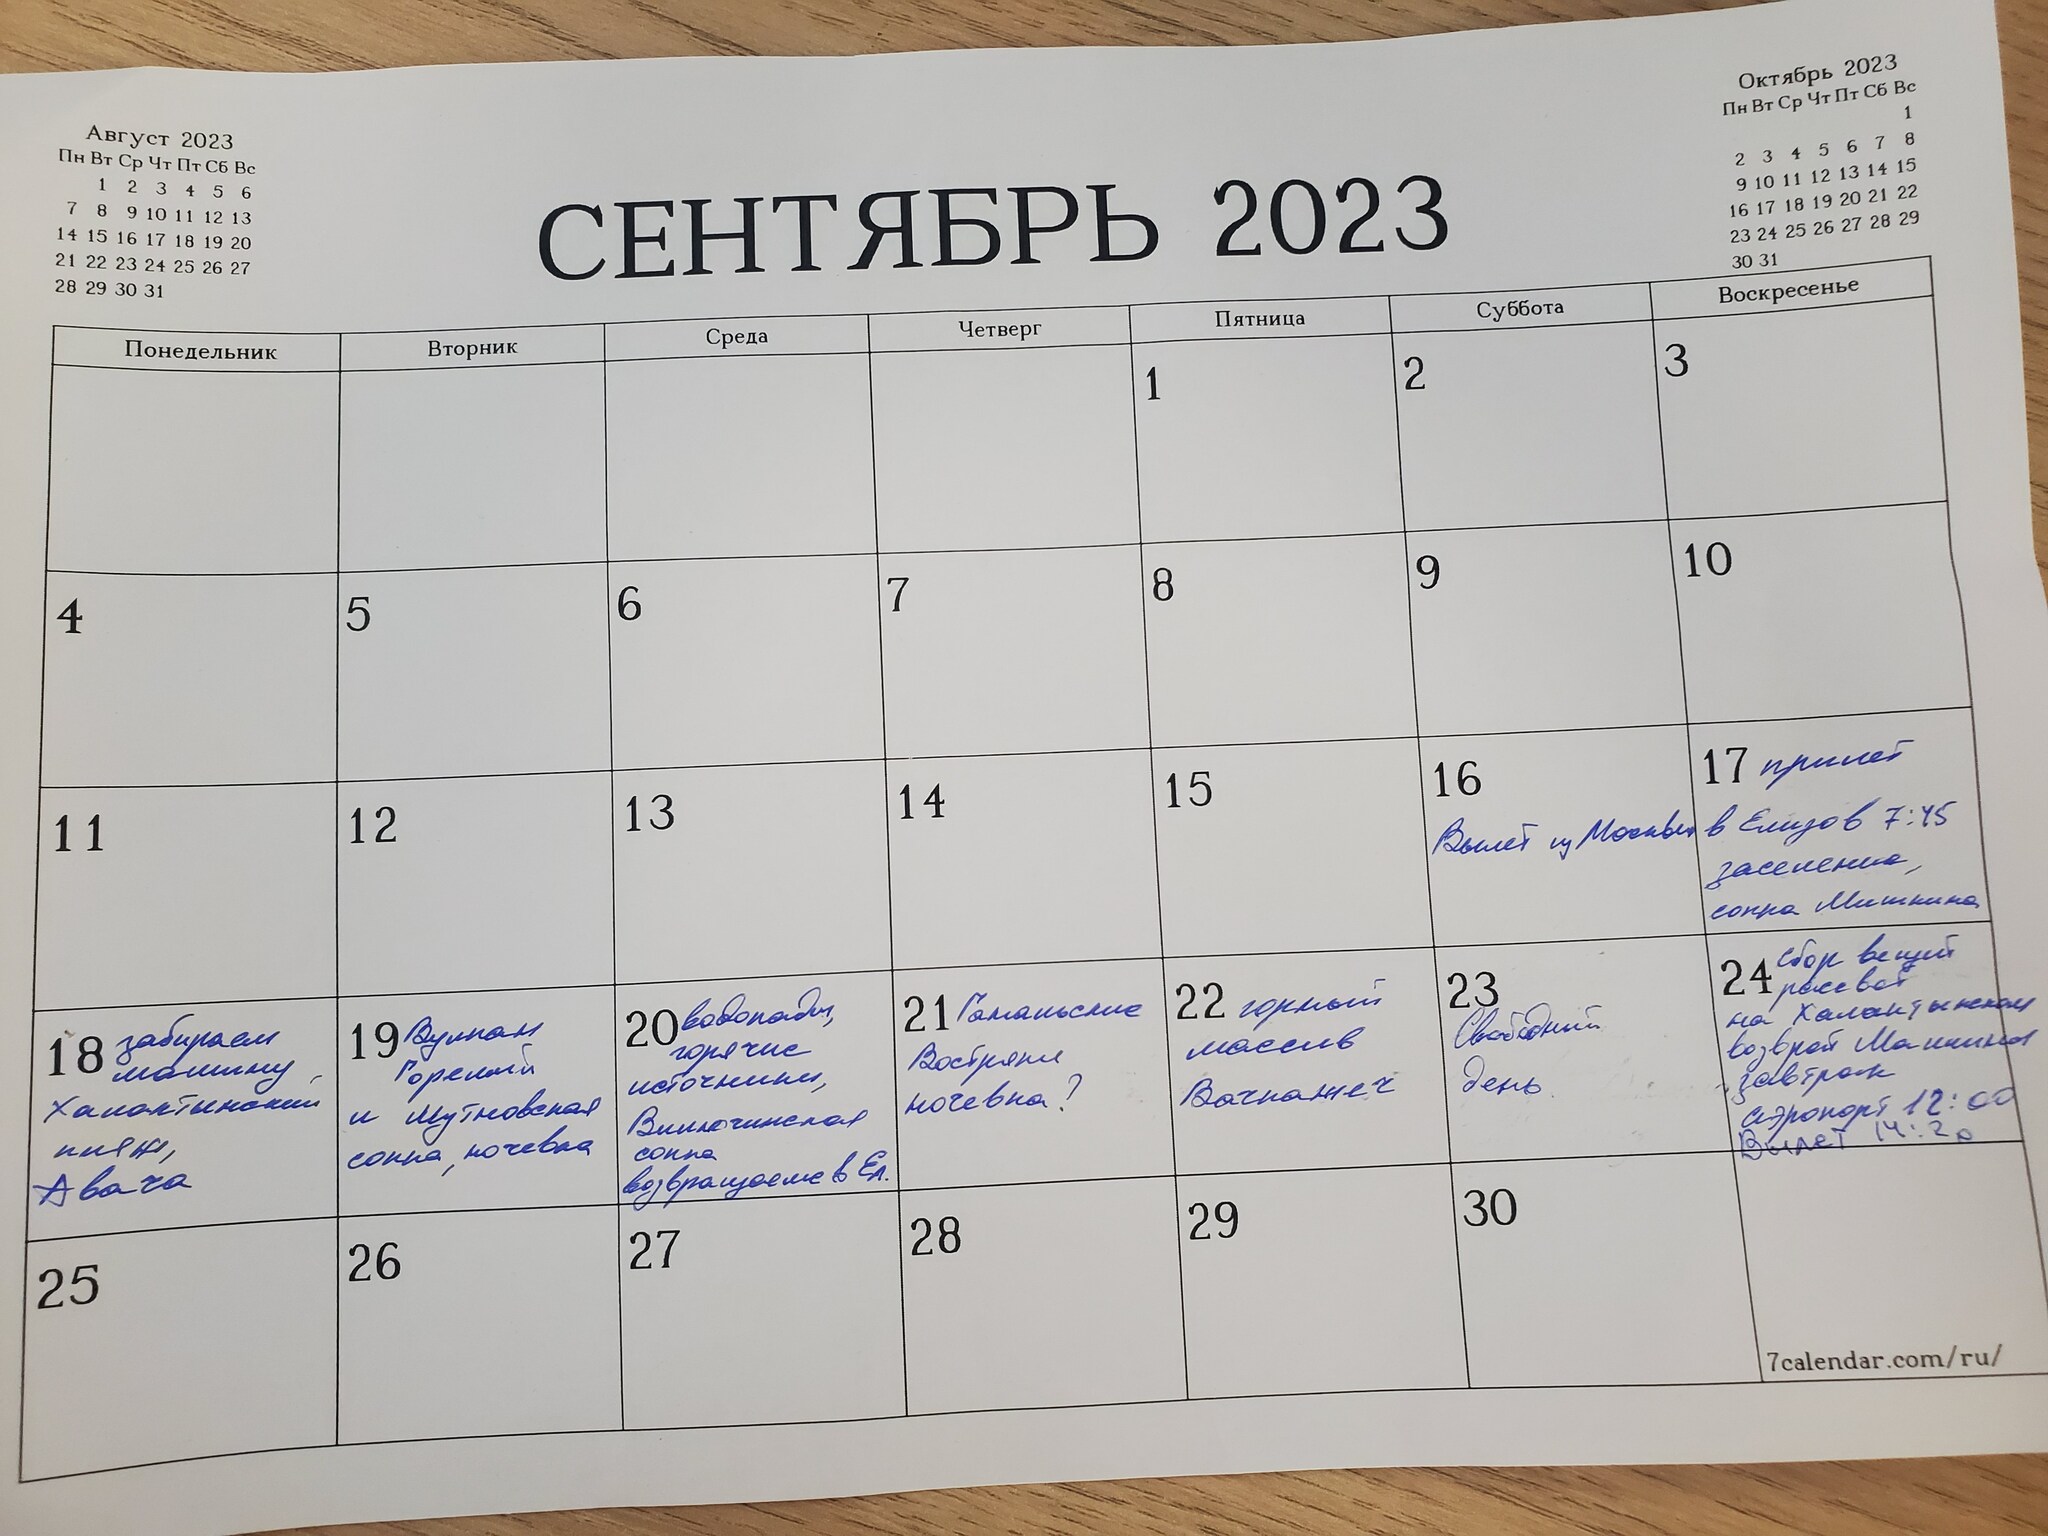 Август 2023
Пн Вт Ср Чт Пт Сб Вс
1 2 3 4 5 6
7 8 9 10 11 12 13
14 15 16 17 18 19 20
21 22 23 24 25 26 27
28 29 30 31
СЕНТЯБРЬ 2023
Октябрь 2023
Пн Вт Ср Чт Пт Сб Вс
1
2 3 4 5 6 7 8
9 10 11 12 13 14 15
16 17 18 19 20 21 22
23 24 25 26 27 28 29
30 31
Понедельник Вторник Среда Четверг Пятница Суббота Воскресенье
1 2 3
4 5 6 7 8 9 10
11 12 13 14 15
16
Вылет из Москвы
17 прилет
в Елизов 7:45
заселение,
сопка Мишкина
18 забираем
машину
Халактынский
пляж,
Авача
19 Вулкан
Горелый
и Мутновская
сопка, ночевка
20 водопады,
горячие
источники,
Вилючинская
сопка
возвращаемся в Ел.
21 Гаманьские
Востряки
ночевка?
22 горный
массив
Вачкажец
23
Свободный
день
24 Сбор вещей
рассвет
на Халактынском
возврат Машины
завтрак
аэропорт 12:00
Вылет 14:20
25 26 27 28 29 30
7calendar.com/ru/